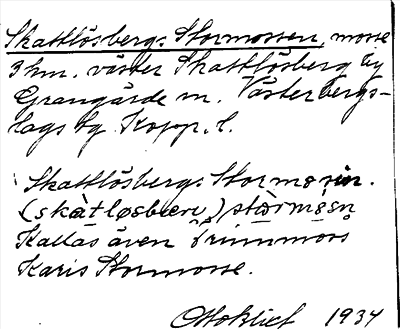 Skattlösbergs Stormossen, mosse
3 km. väster Skattlösberg by
Grangärde sn. Västerbergs-
lags tg. Kopp. l.
Skattlösbergs Stormossen.
(skàtløsbærı) stòrmåsn
Kallas även Brinnmors
Karis Stormosse.
Ottoklief 1934